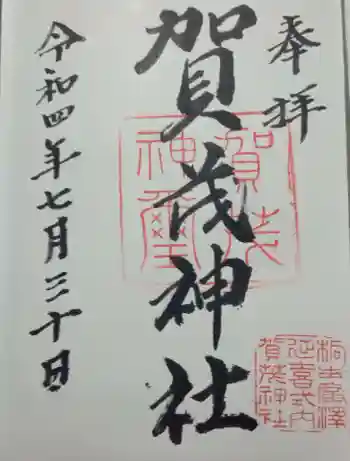 奉拝
賀茂神社
令和四年七月三十日
賀茂
神璽
延喜式内
賀茂神社